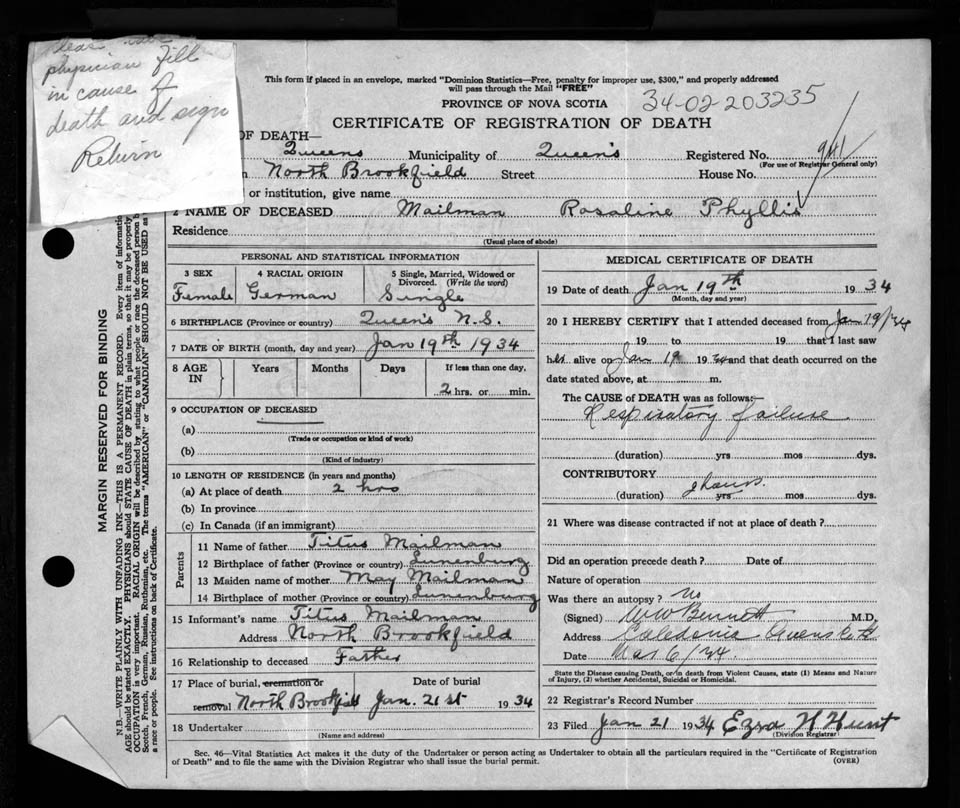 physician fill
in cause of
death and sign
Return
This form if placed in an envelope, marked "Dominion Statistics—Free, penalty for improper use, $300," and properly addressed
will pass through the Mail "FREE"
PROVINCE OF NOVA SCOTIA
34-02-203235
CERTIFICATE OF REGISTRATION OF DEATH
OF DEATH—
Queens Municipality of Queen's Registered No. 941
(For use of Registrar General only)
North Brookfield Street House No.
or institution, give name
2 NAME OF DECEASED Mailman Rosaline Phyllis
Residence
(Usual place of abode)
PERSONAL AND STATISTICAL INFORMATION
3 SEX 4 RACIAL ORIGIN 5 Single, Married, Widowed or
Divorced. (Write the word)
Female German Single
6 BIRTHPLACE (Province or country) Queen's N.S.
7 DATE OF BIRTH (month, day and year) Jan 19th 1934
8 AGE IN Years Months Days If less than one day,
2 hrs. or min.
9 OCCUPATION OF DECEASED
(a)
(Trade or occupation or kind of work)
(b)
(Kind of industry)
10 LENGTH OF RESIDENCE (in years and months)
(a) At place of death 2 hrs
(b) In province
(c) In Canada (if an immigrant)
Parents
11 Name of father Titus Mailman
12 Birthplace of father (Province or country) Lunenburg
13 Maiden name of mother May Mailman
14 Birthplace of mother (Province or country) Lunenburg
15 Informant's name Titus Mailman
Address North Brookfield
16 Relationship to deceased Father
17 Place of burial, cremation or Date of burial
removal North Brookfield Jan. 21st 1934
18 Undertaker
(Name and address)
MEDICAL CERTIFICATE OF DEATH
19 Date of death Jan 19th 1934
(Month, day and year)
20 I HEREBY CERTIFY that I attended deceased from Jan 19/34
19 to 19 that I last saw
her alive on Jan 19 1934 and that death occurred on the
date stated above, at m.
The CAUSE of DEATH was as follows:—
Respiratory failure
(duration) yrs mos dys.
CONTRIBUTORY
(duration) 2 hours. yrs mos dys.
21 Where was disease contracted if not at place of death?
Did an operation precede death? Date of
Nature of operation
Was there an autopsy? No
(Signed) WW Bennett M.D.
Address Caledonia Queens
Date Mar 6/34.
State the Disease causing Death, or in death from Violent Causes, state (1) Means and Nature
of Injury, (2) whether Accidental, Suicidal or Homicidal.
22 Registrar's Record Number
23 Filed Jan 21 1934 Ezra H Hunt
(Division Registrar)
Sec. 46—Vital Statistics Act makes it the duty of the Undertaker or person acting as Undertaker to obtain all the particulars required in the "Certificate of Registration
of Death" and to file the same with the Division Registrar who shall issue the burial permit. (OVER)
MARGIN RESERVED FOR BINDING
N.B.—WRITE PLAINLY WITH UNFADING INK—THIS IS A PERMANENT RECORD. Every item of information
AGE should be stated EXACTLY. PHYSICIANS should STATE CAUSE OF DEATH in plain terms, so that it may be properly
OCCUPATION is very important. RACIAL ORIGIN will be described by stating to what people or race the deceased person b
Scotch, French, German, Russian, Ruthenian, etc. The terms "AMERICAN" or "CANADIAN" SHOULD NOT BE USED as
a race or people. See instructions on back of Certificate.